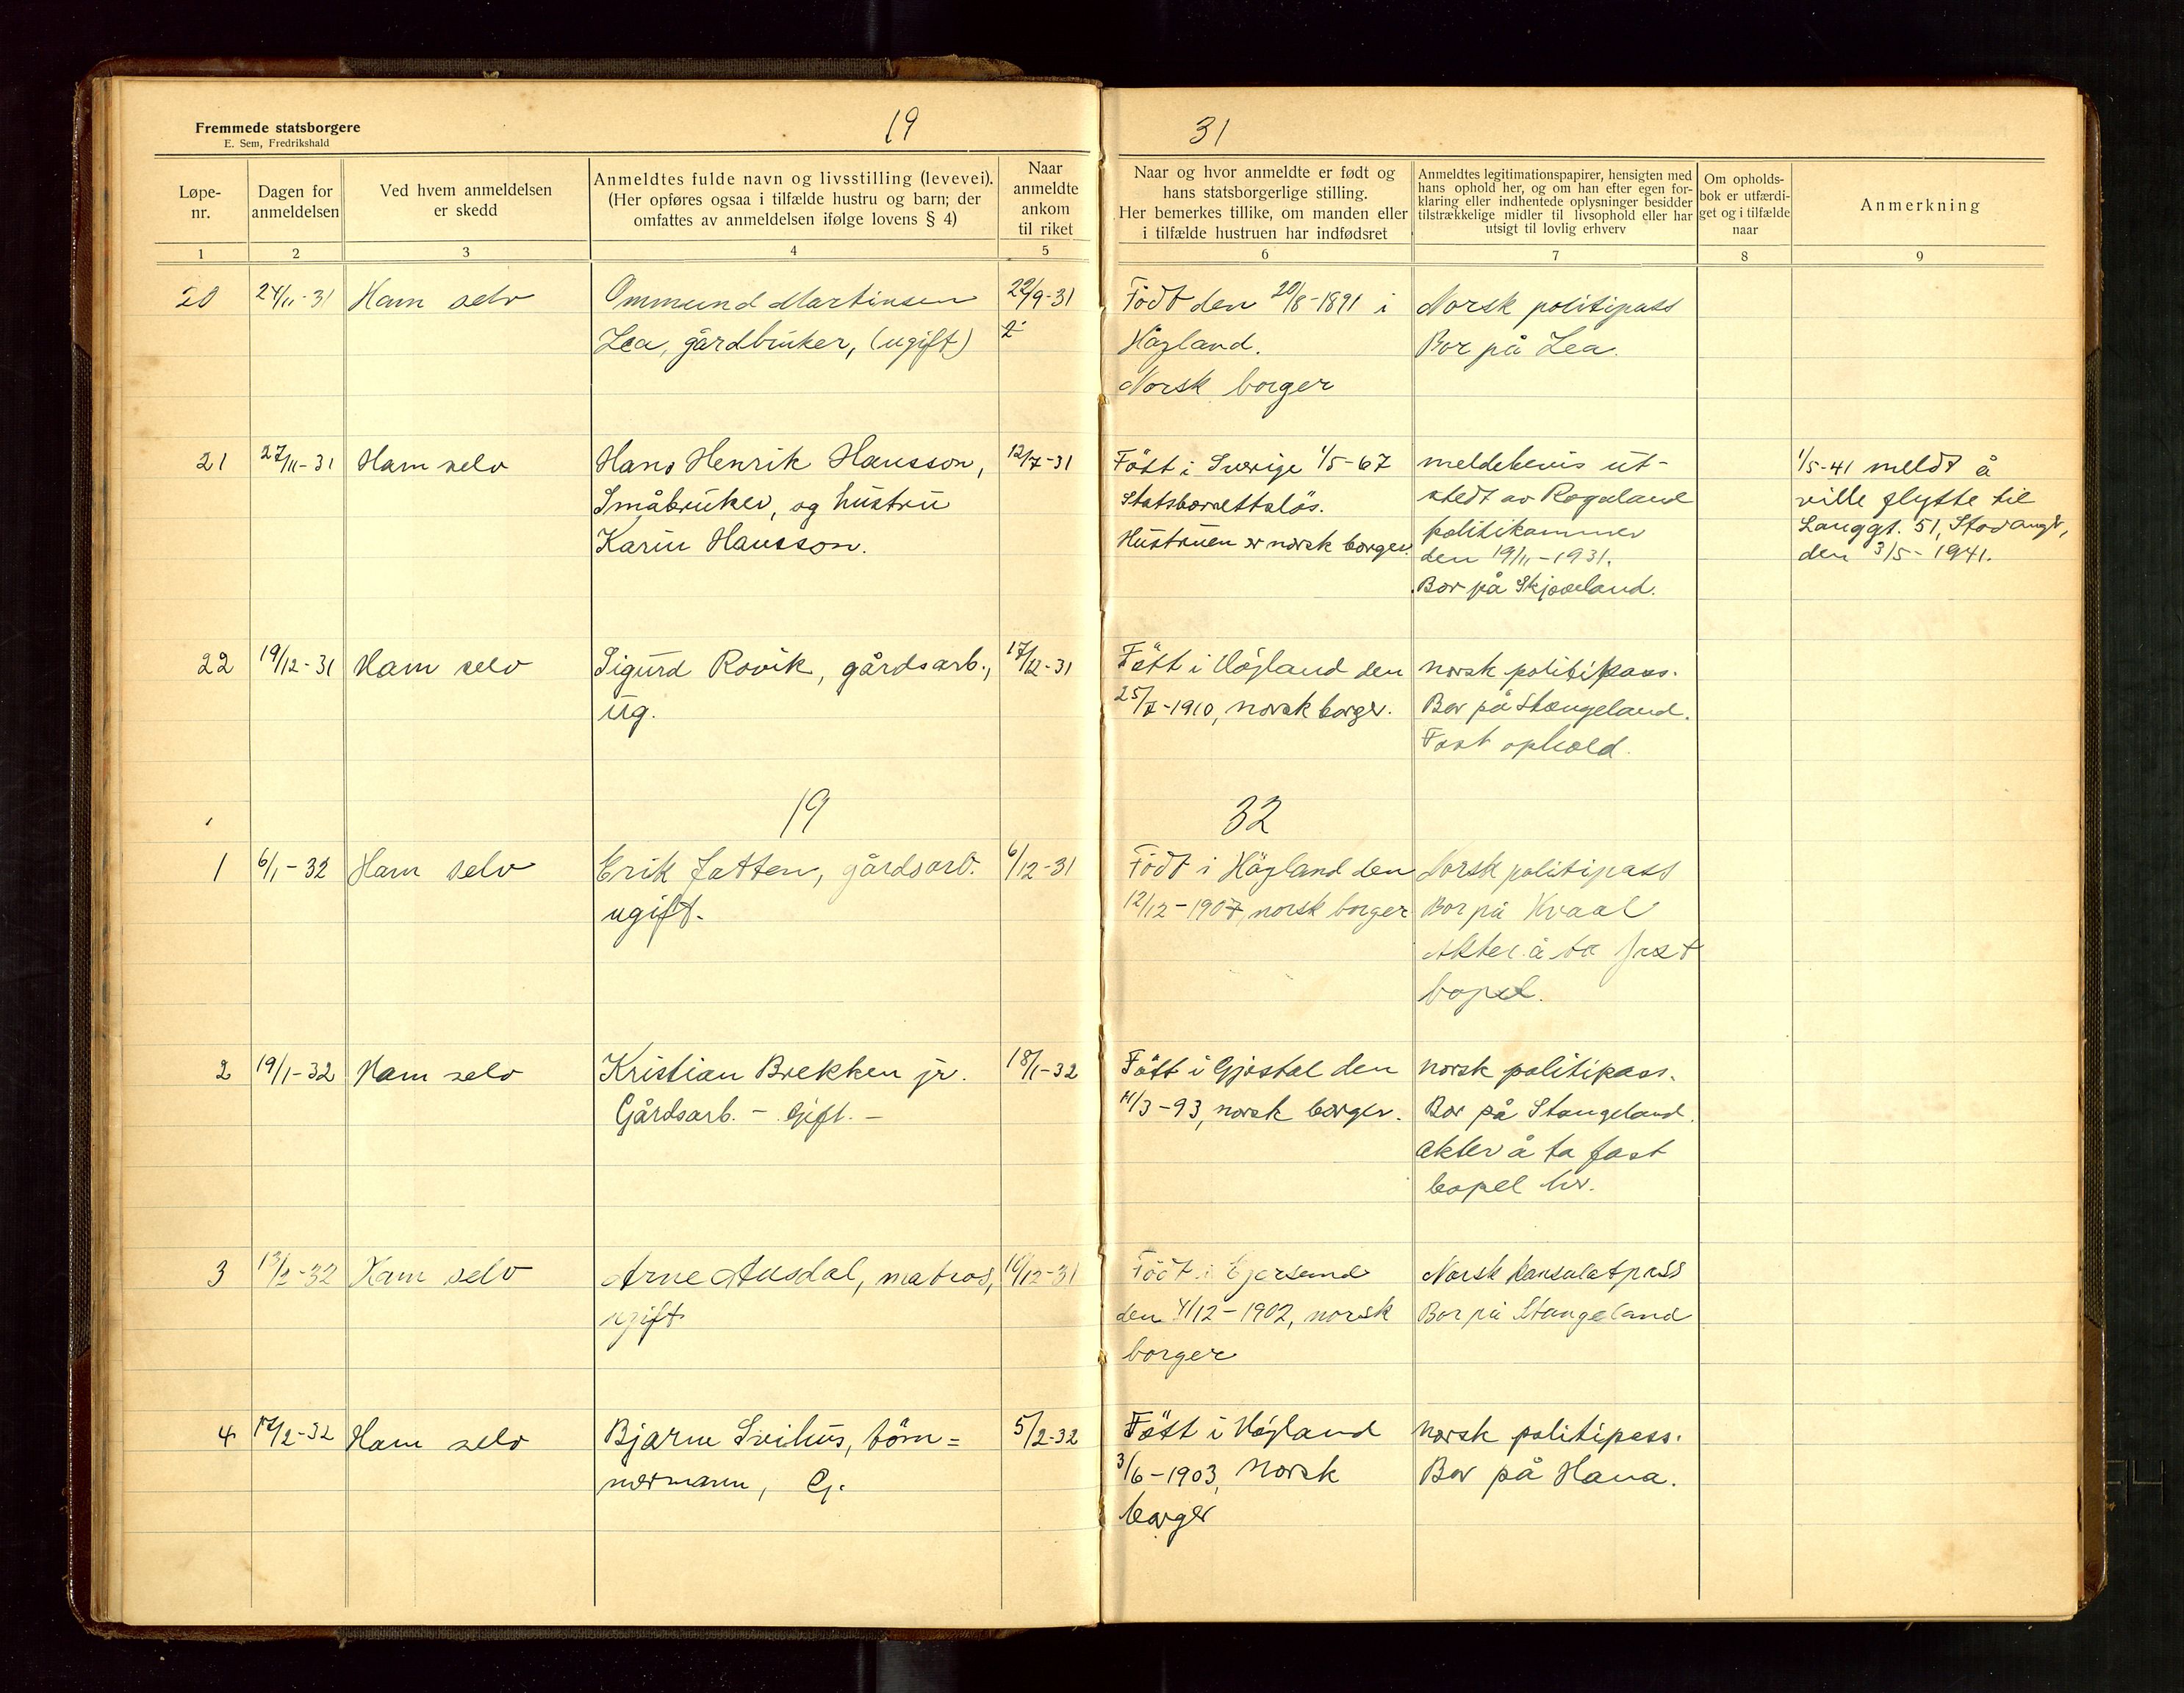 Fremmede statsborgere
E. Sem, Fredrikshald
19 31
Løpe-
nr.
Dagen for
anmeldelsen
Ved hvem anmeldelsen
er skedd
Anmeldtes fulde navn og livsstilling (levevei).
(Her opføres ogsaa i tilfælde hustru og barn; der
omfattes av anmeldelsen ifølge lovens § 4)
Naar
anmeldte
ankom
til riket
Naar og hvor anmeldte er født og
hans statsborgerlige stilling.
Her bemerkes tillike, om manden eller
i tilfælde hustruen har indfødsret
Anmeldtes legitimationspapirer, hensigten med
hans ophold her, og om han efter egen for-
klaring eller indhentede oplysninger besidder
tilstrækkelige midler til livsophold eller har
utsigt til lovlig erhverv
Om opholds-
bok er utfærdi-
get og i tilfælde
naar
Anmerkning
1 2 3 4 5 6 7 8 9
20 24/11-31 Ham selv
Ommund Martinsen
Lea, gårdbruker, (ugift)
22/9-31
Födt den 20/8-1891 i
Högland.
Norsk borger
Norsk politipass
Bor på Lea.
21 27/11-31 Ham selv
Hans Henrik Hansson,
Småbruker, og hustru
Karin Hansson.
12/7-31
Fött i Sverige 1/5-67
Statsborrettslös.
Hustruen er norsk borger.
meldebevis ut-
stedt av Rogaland
politikammer
den 19/11-1931.
Bor på Skjæveland.
1/5-41 meldt å
ville flytte til
Langgt. 51, Stavangr,
den 3/5-1941.
22 19/12-31 Ham selv
Sigurd Rovik, gårdsarb.,
ug.
17/12-31
Fött i Högland den
25/7-1910, norsk borger.
norsk politipass.
Bor på Stangeland.
Fast ophold.
19 32
1 6/1-32 Ham selv
Erik Jatten, gårdsarb.
ugift.
6/12-31
Födt i Högland den
12/12-1907, norsk borger
Norsk politipass
Bor på Kvaal
Akter å ta fast
bopel.
2 19/1-32 Ham selv
Kristian Brekken jr.
Gårdsarb. - Gift. -
18/1-32
Fött i Gjestal den
11/3-93, norsk borger.
norsk politipass.
Bor på Stangeland.
akter å ta fast
bopel her.
3 13/2-32 Ham selv
Arne Ausdal, matros,
ugift
10/12-31
Födt i Egersund
den 4/12-1902, norsk
borger
Norsk konsulatpass
Bor på Stangeland
4 17/2-32 Ham selv
Bjarne Svihus, töm=
mermann, G.
5/2-32
Fött i Högland
3/6-1903, norsk
borger
norsk politipass.
Bor på Hana.